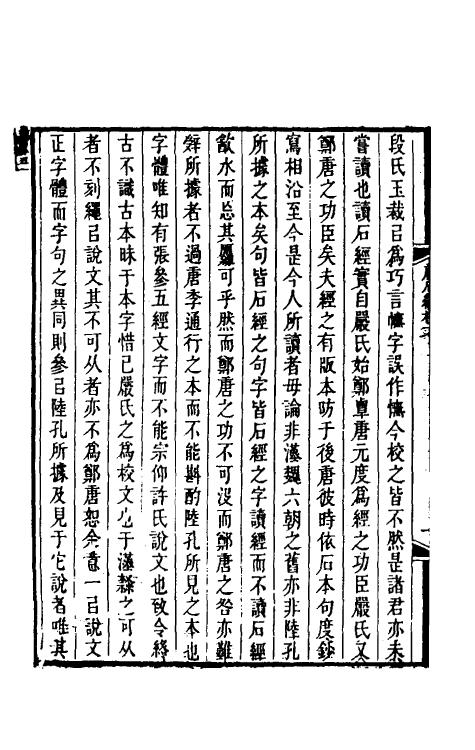 段氏玉裁㠯爲巧言憮字誤作憮今校之皆不然是諸君亦未
嘗讀也讀石經實自嚴氏始鄭覃唐元度爲經之功臣嚴氏又
鄭唐之功臣矣夫經之有版本昉于後唐彼時依石本句度鈔
寫相沿至今是今人所讀者毋論非漢魏六朝之舊亦非陸孔
所據之本矣句皆石經之句字皆石經之字讀經而不讀石經
飲水而忘其原可乎然而鄭唐之功不可没而鄭唐之咎亦難
辤所據者不過唐季通行之本而不能斟酌陸孔所見之本也
字體唯知有張參五經文字而不能宗仰許氏說文也致令終
古不識古本昧于本字惜已嚴氏之爲校文也于漢隸之可从
者不刻繩㠯說文其不可从者亦不爲鄭唐恕余意一㠯說文
正字體而字句之異同則參㠯陸孔所據及見于它說者唯其